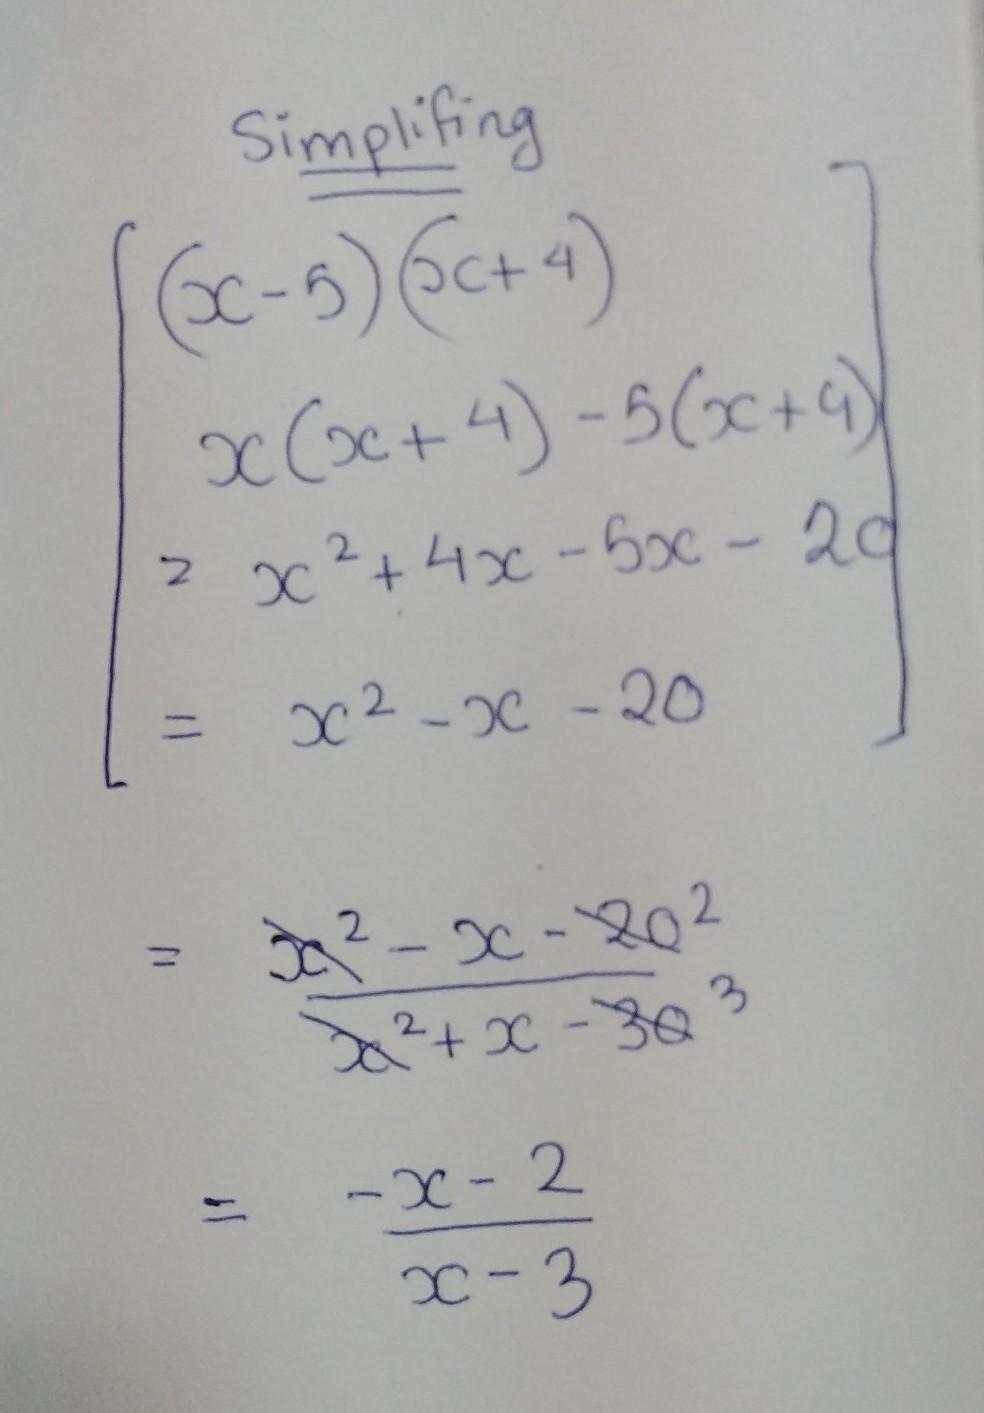 Simplifing
(x-5)(x+4)
x(x+4) -5(x+4)
= x² + 4x - 5x - 20
= x² - x - 20
= x² - x - 20 2
x² + x - 30 3
= -x - 2
x - 3